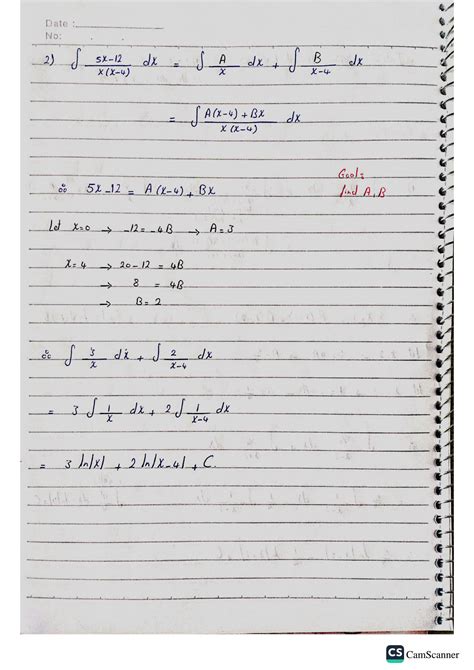 Date :
No:
2) ∫ 5x-12 / x(x-4) dx = ∫ A/x dx + ∫ B/x-4 dx
= ∫ A(x-4) + Bx / x(x-4) dx
Goal:
find A,B
∴ 5x-12 = A(x-4) + Bx
let x=0 → -12 = -4B → A=3
x=4 → 20-12 = 4B
→ 8 = 4B
→ B=2
∴ ∫ 3/x dx + ∫ 2/x-4 dx
= 3 ∫ 1/x dx + 2 ∫ 1/x-4 dx
= 3 ln|x| + 2 ln|x-4| + C.
CS CamScanner